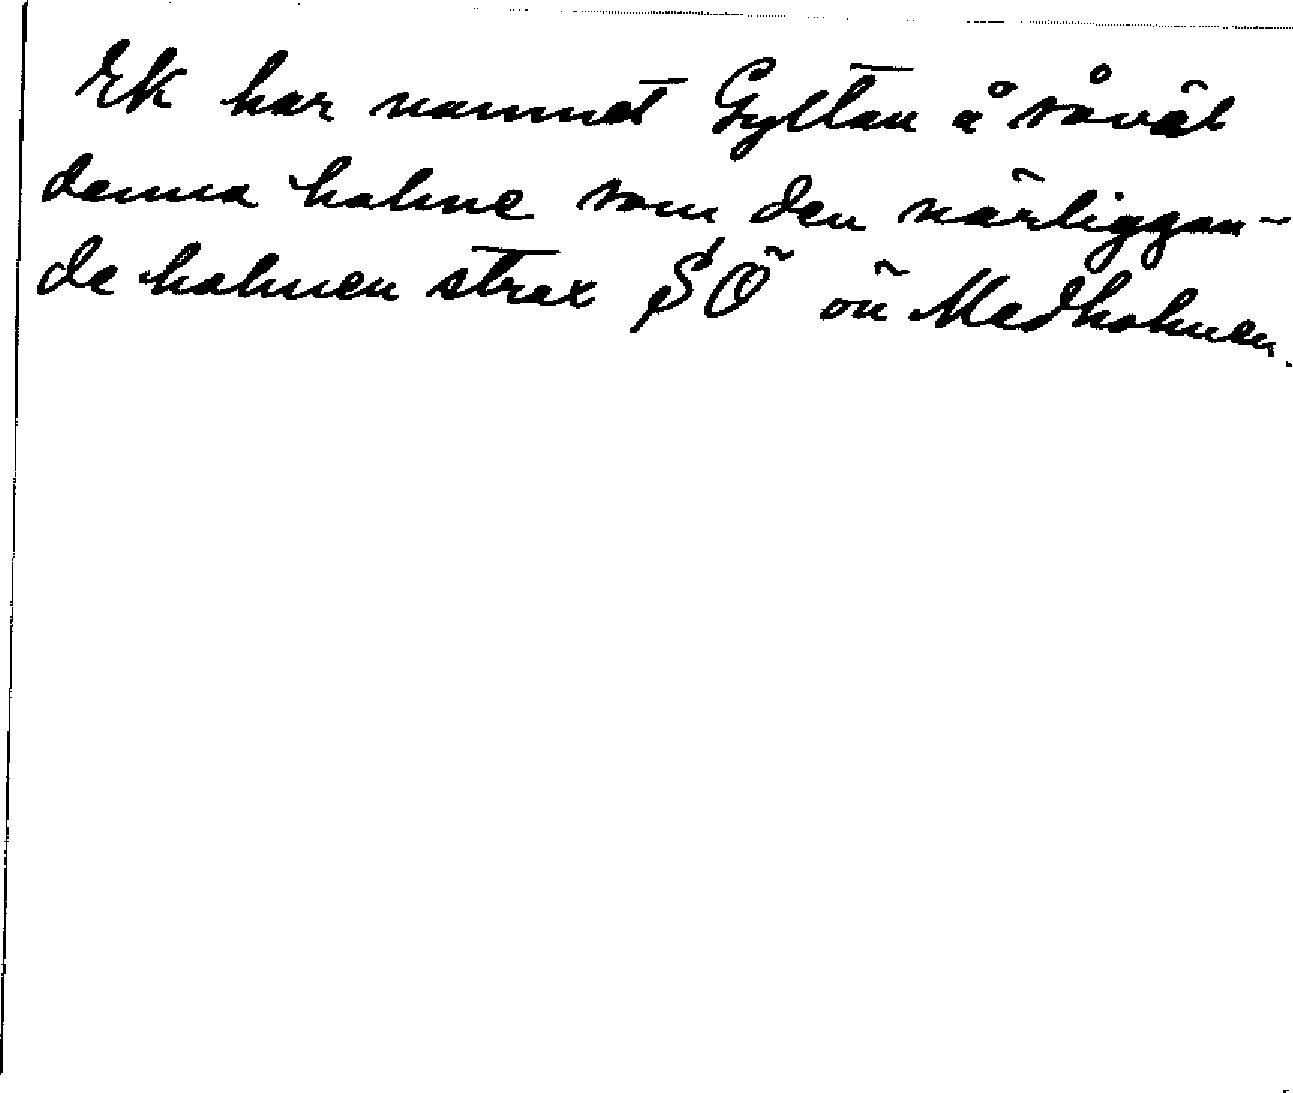 Ek har namnet Gyltan å såväl
denna holme som den närliggan-
de holmen strax SÖ om Medholmen.